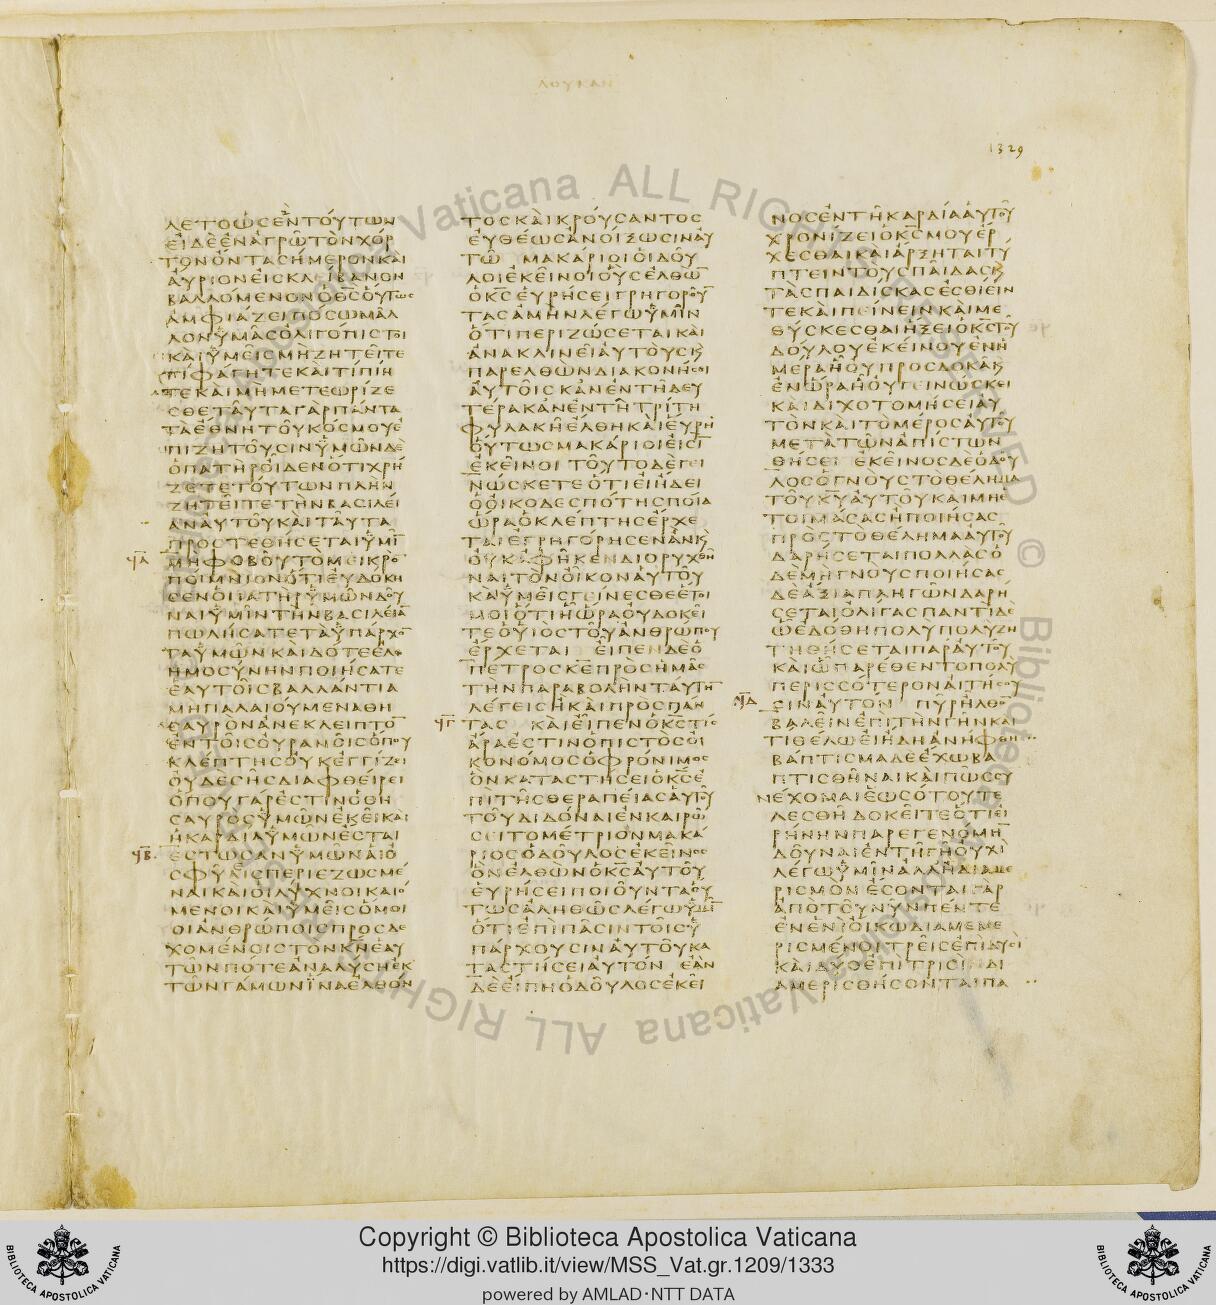 ΛΟΥΚΑΝ
1329
ΛΕΤΟΩϹΕΝΤΟΥΤΩΝ
ΕΙΔΕΕΝΑΓΡΩΤΟΝΧΟΡ
ΤΟΝΟΝΤΑϹΗΜΕΡΟΝΚΑΙ
ΑΥΡΙΟΝΕΙϹΚΛΙΒΑΝΟΝ
ΒΑΛΛΟΜΕΝΟΝΟΘ̅Ϲ̅ΟΥΤΩϹ
ΑΜΦΙΑΖΕΙΠΟϹΩΜΑΛ
ΛΟΝΥΜΑϹΟΛΙΓΟΠΙϹΤΟΙ
ΚΑΙΥΜΕΙϹΜΗΖΗΤΕΙΤΕ
ΤΙΦΑΓΗΤΕΚΑΙΤΙΠΙΗ
ΤΕΚΑΙΜΗΜΕΤΕΩΡΙΖΕ
ϹΘΕΤΑΥΤΑΓΑΡΠΑΝΤΑ
ΤΑΕΘΝΗΤΟΥΚΟϹΜΟΥΕ
ΠΙΖΗΤΟΥϹΙΝΥΜΩΝΔΕ
ΟΠΑΤΗΡΟΙΔΕΝΟΤΙΧΡΗ
ΖΕΤΕΤΟΥΤΩΝΠΛΗΝ
ΖΗΤΕΙΤΕΤΗΝΒΑϹΙΛΕΙ
ΑΝΑΥΤΟΥΚΑΙΤΑΥΤΑ
ΠΡΟϹΤΕΘΗϹΕΤΑΙΥΜΙ̅
ΜΗΦΟΒΟΥΤΟΜΕΙΚΡΟ̅
ΠΟΙΜΝΙΟΝΟΤΙΕΥΔΟΚΗ
ϹΕΝΟΠΑΤΗΡΥΜΩΝΔΟΥ
ΝΑΙΥΜΙΝΤΗΝΒΑϹΙΛΕΙΑ̅
ΠΩΛΗϹΑΤΕΤΑΥΠΑΡΧΟ̅
ΤΑΥΜΩΝΚΑΙΔΟΤΕΕΛΕ
ΗΜΟϹΥΝΗΝΠΟΙΗϹΑΤΕ
ΕΑΥΤΟΙϹΒΑΛΛΑΝΤΙΑ
ΜΗΠΑΛΑΙΟΥΜΕΝΑΘΗ
ϹΑΥΡΟΝΑΝΕΚΛΕΙΠΤΟ̅
ΕΝΤΟΙϹΟΥΡΑΝΟΙϹΟΠΟΥ
ΚΛΕΠΤΗϹΟΥΚΕΓΓΙΖΕΙ
ΟΥΔΕϹΗϹΔΙΑΦΘΕΙΡΕΙ
ΟΠΟΥΓΑΡΕϹΤΙΝΟΘΗ
ϹΑΥΡΟϹΥΜΩΝΕΚΕΙΚΑΙ
ΗΚΑΡΔΙΑΥΜΩΝΕϹΤΑΙ
ΕϹΤΩϹΑΝΥΜΩΝΑΙΟ
ϹΦΥΕϹΠΕΡΙΕΖΩϹΜΕ
ΝΑΙΚΑΙΟΙΛΥΧΝΟΙΚΑΙΟ
ΜΕΝΟΙΚΑΙΥΜΕΙϹΟΜΟΙ
ΟΙΑΝΘΡΩΠΟΙϹΠΡΟϹΔΕ
ΧΟΜΕΝΟΙϹΤΟΝΚ̅Ν̅ΕΑΥ
ΤΩΝΠΟΤΕΑΝΑΛΥϹΗΕΚ
ΤΩΝΓΑΜΩΝΙΝΑΕΛΘΟΝ
ΤΟϹΚΑΙΚΡΟΥϹΑΝΤΟϹ
ΕΥΘΕΩϹΑΝΟΙΞΩϹΙΝΑΥ
ΤΩ ΜΑΚΑΡΙΟΙΟΙΔΟΥ
ΛΟΙΕΚΕΙΝΟΙΟΥϹΕΛΘΩ̅
ΟΚ̅Ϲ̅ΕΥΡΗϹΕΙΓΡΗΓΟΡΟΥ̅
ΤΑϹΑΜΗΝΛΕΓΩΥΜΙΝ
ΟΤΙΠΕΡΙΖΩϹΕΤΑΙΚΑΙ
ΑΝΑΚΛΙΝΕΙΑΥΤΟΥϹΚ
ΠΑΡΕΛΘΩΝΔΙΑΚΟΝΗϹΕΙ
ΑΥΤΟΙϹΚΑΝΕΝΤΗΔΕΥ
ΤΕΡΑΚΑΝΕΝΤΗΤΡΙΤΗ
ΦΥΛΑΚΗΕΛΘΗΚΑΙΕΥΡΗ
ΟΥΤΩϹΜΑΚΑΡΙΟΙΕΙϹΙ̅
ΕΚΕΙΝΟΙ ΤΟΥΤΟΔΕΓΕΙ
ΝΩϹΚΕΤΕΟΤΙΕΙΗΔΕΙ
ΟΟΙΚΟΔΕϹΠΟΤΗϹΠΟΙΑ
ΩΡΑΟΚΛΕΠΤΗϹΕΡΧΕ
ΤΑΙΕΓΡΗΓΟΡΗϹΕΝΑΝΚ
ΟΥΚΑΦΗΚΕΝΔΙΟΡΥΧΘΗ
ΝΑΙΤΟΝΟΙΚΟΝΑΥΤΟΥ
ΚΑΙΥΜΕΙϹΓΕΙΝΕϹΘΕΕΤΟΙ
ΜΟΙΟΤΙΗΩΡΑΟΥΔΟΚΕΙ
ΤΕΟΥΙΟϹΤΟΥΑΝΘΡΩΠΟΥ
ΕΡΧΕΤΑΙ ΕΙΠΕΝΔΕΟ
ΠΕΤΡΟϹΚ̅Ε̅ΠΡΟϹΗΜΑϹ
ΤΗΝΠΑΡΑΒΟΛΗΝΤΑΥΤΗ̅
ΛΕΓΕΙϹΗΚΑΙΠΡΟϹΠΑΝ
ΤΑϹ ΚΑΙΕΙΠΕΝΟΚ̅Ϲ̅ΤΙϹ
ΑΡΑΕϹΤΙΝΟΠΙϹΤΟϹΟΙ
ΚΟΝΟΜΟϹΟΦΡΟΝΙΜΟϹ
ΟΝΚΑΤΑϹΤΗϹΕΙΟΚ̅Ϲ̅Ε
ΠΙΤΗϹΘΕΡΑΠΕΙΑϹΑΥΤΟΥ
ΤΟΥΔΙΔΟΝΑΙΕΝΚΑΙΡΩ
ϹΕΙΤΟΜΕΤΡΙΟΝΜΑΚΑ
ΡΙΟϹΟΔΟΥΛΟϹΕΚΕΙΝΟϹ
ΟΝΕΛΘΩΝΟΚ̅Ϲ̅ΑΥΤΟΥ
ΕΥΡΗϹΕΙΠΟΙΟΥΝΤΑΟΥ
ΤΩϹΑΛΗΘΩϹΛΕΓΩΥΜΙ̅
ΟΤΙΕΠΙΠΑϹΙΝΤΟΙϹΥ
ΠΑΡΧΟΥϹΙΝΑΥΤΟΥΚΑ
ΤΑϹΤΗϹΕΙΑΥΤΟΝ ΕΑΝ
ΔΕΕΙΠΗΟΔΟΥΛΟϹΕΚΕΙ
ΝΟϹΕΝΤΗΚΑΡΔΙΑΑΥΤΟΥ
ΧΡΟΝΙΖΕΙΟΚ̅Ϲ̅ΜΟΥΕΡ
ΧΕϹΘΑΙΚΑΙΑΡΞΗΤΑΙΤΥ
ΠΤΕΙΝΤΟΥϹΠΑΙΔΑϹΚ
ΤΑϹΠΑΙΔΙϹΚΑϹΕϹΘΙΕΙΝ
ΤΕΚΑΙΠΕΙΝΕΙΝΚΑΙΜΕ
ΘΥϹΚΕϹΘΑΙΗΞΕΙΟΚ̅Ϲ̅ΤΟΥ
ΔΟΥΛΟΥΕΚΕΙΝΟΥΕΝΗ
ΜΕΡΑΗΟΥΠΡΟϹΔΟΚΑΚ
ΕΝΩΡΑΗΟΥΓΕΙΝΩϹΚΕΙ
ΚΑΙΔΙΧΟΤΟΜΗϹΕΙΑΥ
ΤΟΝΚΑΙΤΟΜΕΡΟϹΑΥΤΟΥ
ΜΕΤΑΤΩΝΑΠΙϹΤΩΝ
ΘΗϹΕΙ ΕΚΕΙΝΟϹΔΕΟΔΟΥ
ΛΟϹΟΓΝΟΥϹΤΟΘΕΛΗΜΑ
ΤΟΥΚ̅Υ̅ΑΥΤΟΥΚΑΙΜΗΕ
ΤΟΙΜΑϹΑϹΗΠΟΙΗϹΑϹ
ΠΡΟϹΤΟΘΕΛΗΜΑΑΥΤΟΥ
ΔΑΡΗϹΕΤΑΙΠΟΛΛΑϹΟ
ΔΕΜΗΓΝΟΥϹΠΟΙΗϹΑϹ
ΔΕΑΞΙΑΠΛΗΓΩΝΔΑΡΗ
ϹΕΤΑΙΟΛΙΓΑϹΠΑΝΤΙΔΕ
ΩΕΔΟΘΗΠΟΛΥΠΟΛΥΖΗ
ΤΗΘΗϹΕΤΑΙΠΑΡΑΥΤΟΥ
ΚΑΙΩΠΑΡΕΘΕΝΤΟΠΟΛΥ
ΠΕΡΙϹϹΟΤΕΡΟΝΑΙΤΗϹΟΥ
ϹΙΝΑΥΤΟΝ ΠΥΡΗΛΘΟ̅
ΒΑΛΕΙΝΕΠΙΤΗΝΓΗΝΚΑΙ
ΤΙΘΕΛΩΕΙΗΔΗΑΝΗΦΘΗ
ΒΑΠΤΙϹΜΑΔΕΕΧΩΒΑ
ΠΤΙϹΘΗΝΑΙΚΑΙΠΩϹϹΥ
ΝΕΧΟΜΑΙΕΩϹΟΤΟΥΤΕ
ΛΕϹΘΗΔΟΚΕΙΤΕΟΤΙΕΙ
ΡΗΝΗΝΠΑΡΕΓΕΝΟΜΗ̅
ΔΟΥΝΑΙΕΝΤΗΓΗΟΥΧΙ
ΛΕΓΩΥΜΙΝΑΛΛΗΔΙΑΜΕ
ΡΙϹΜΟΝΕϹΟΝΤΑΙΓΑΡ
ΑΠΟΤΟΥΝΥΝΠΕΝΤΕ
ΕΝΕΝΙΟΙΚΩΔΙΑΜΕΜΕ
ΡΙϹΜΕΝΟΙΤΡΕΙϹΕΠΙΔΥϹΙ
ΚΑΙΔΥΟΕΠΙΤΡΙϹΙΝΔΙ
ΑΜΕΡΙϹΘΗϹΟΝΤΑΙΠΑ
Copyright © Biblioteca Apostolica Vaticana
https://digi.vatlib.it/view/MSS_Vat.gr.1209/1333
powered by AMLAD·NTT DATA
BIBLIOTECA APOSTOLICA VATICANA
BIBLIOTECA APOSTOLICA VATICANA